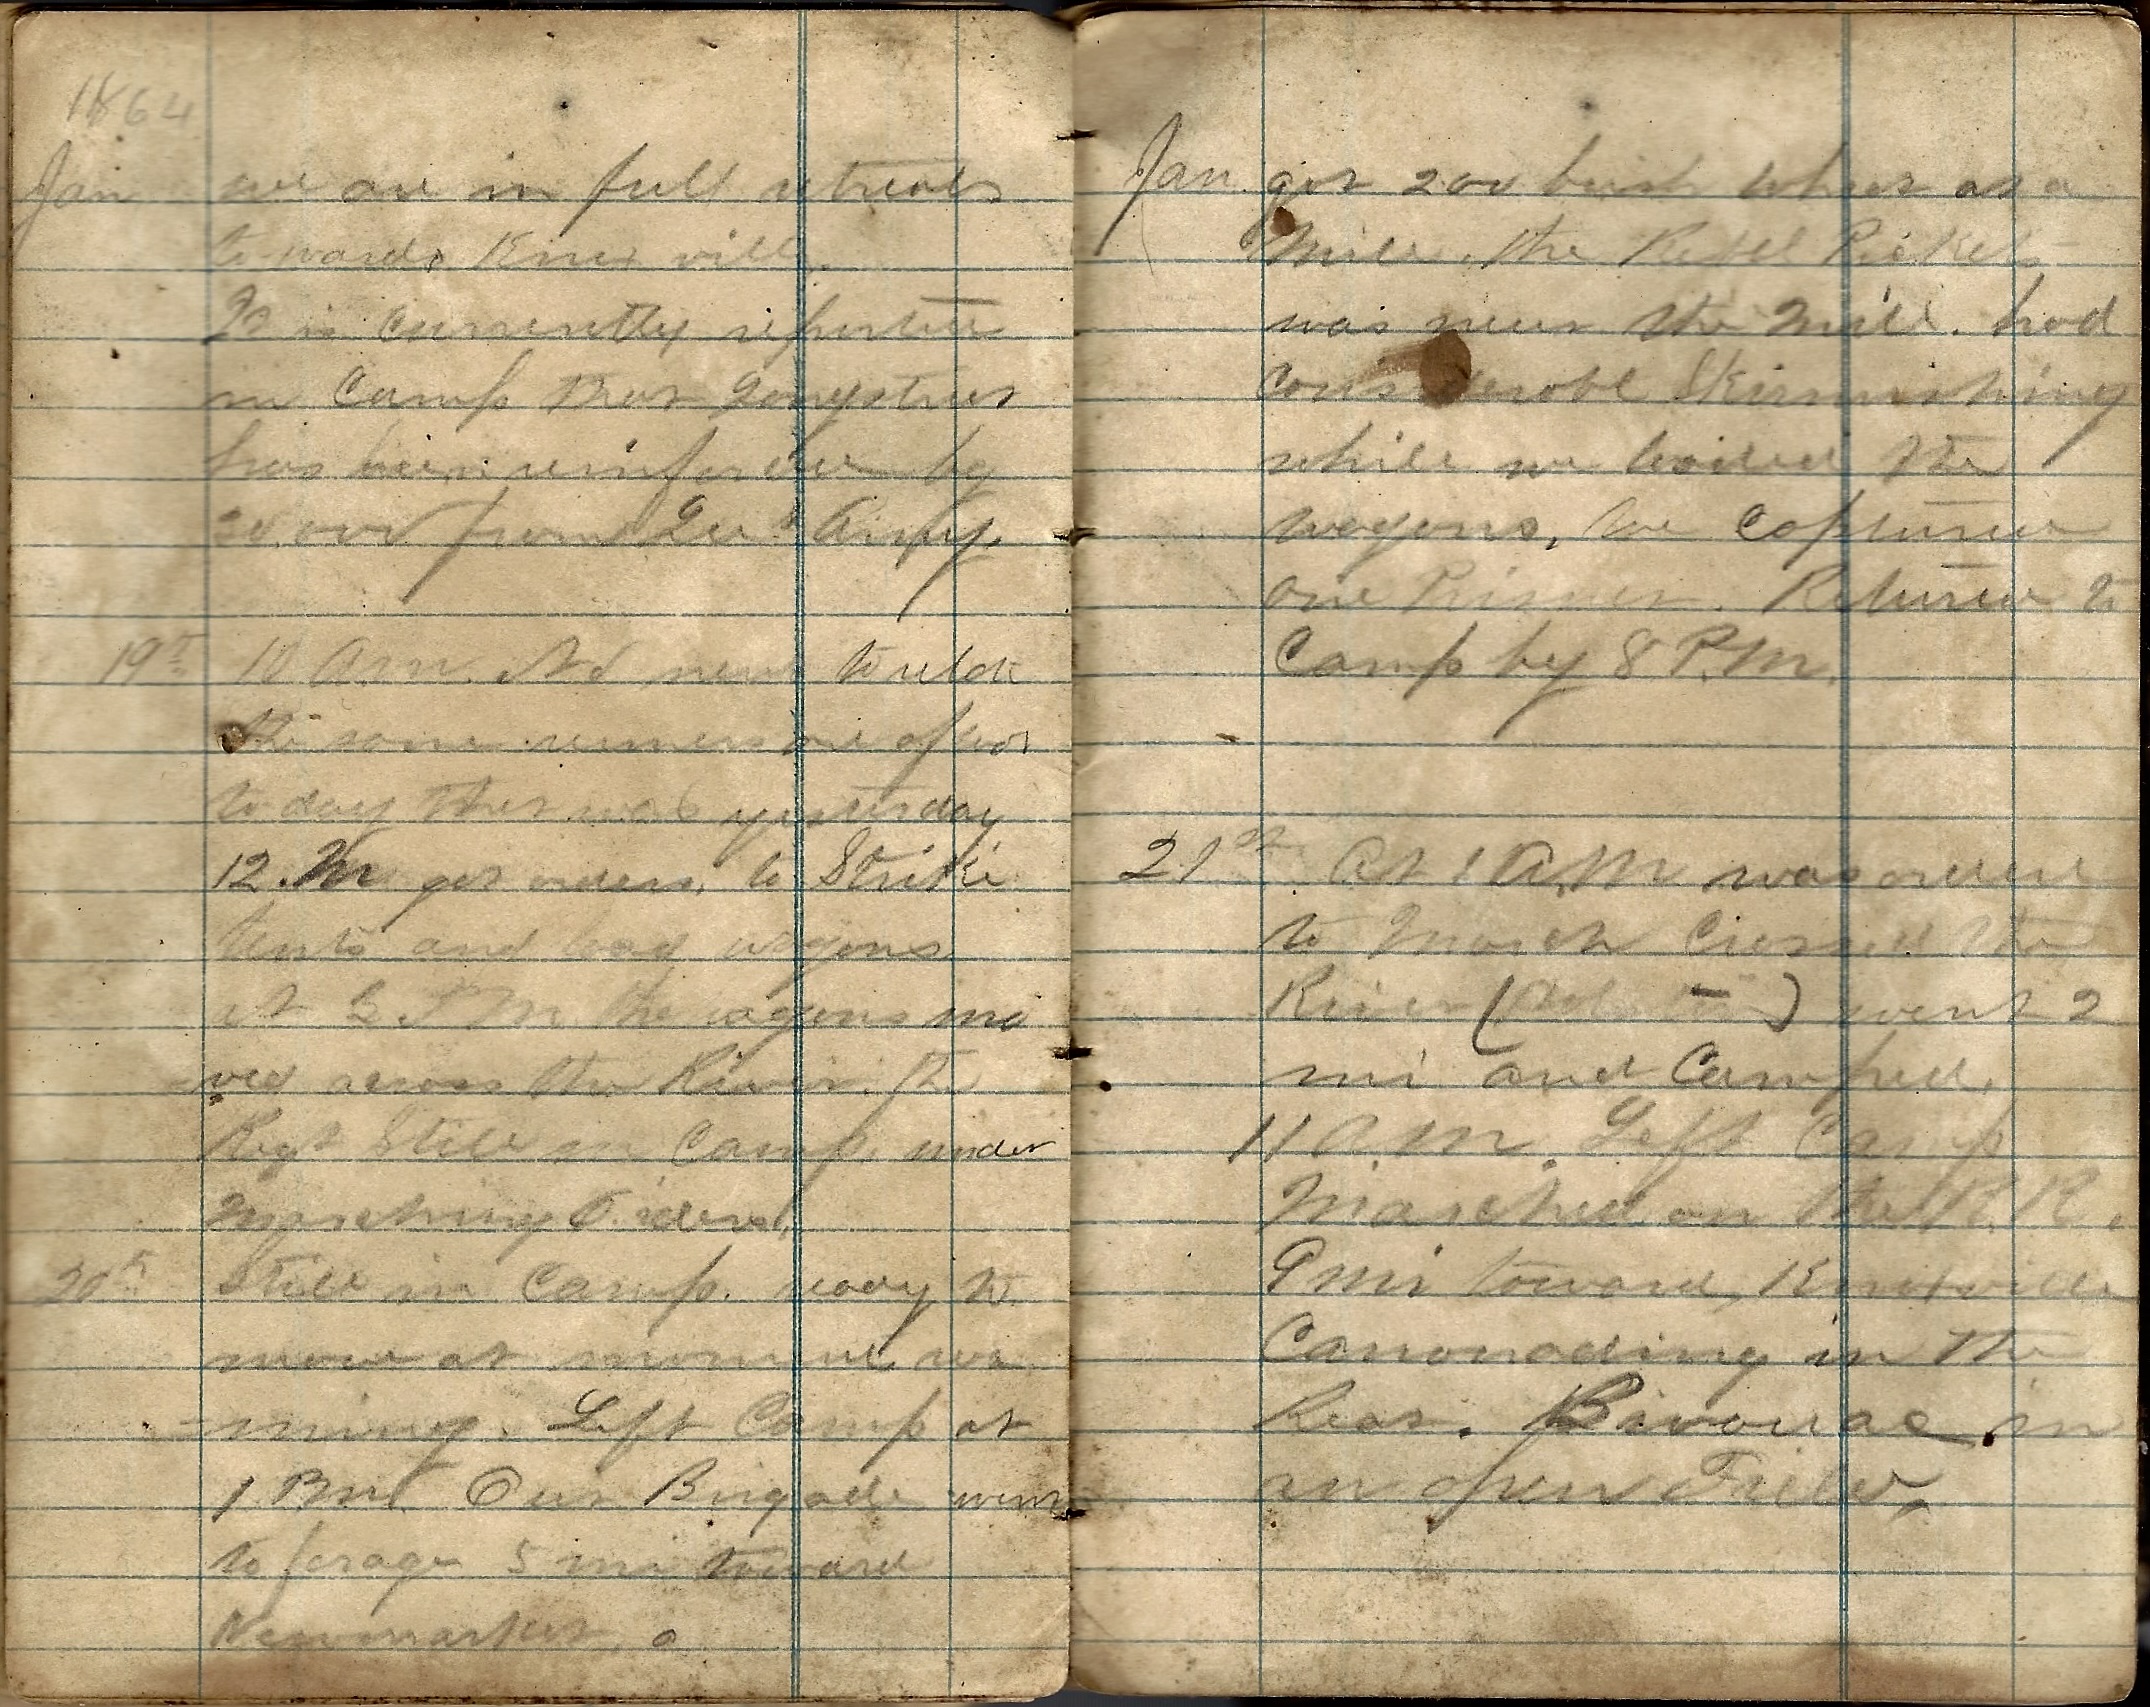 1864
Jan we are in full retreat
towards Knox ville.
It is currently reported
in Camp that Longstreet
has been reinforced by
30.000 from Lee's Army.
19th 10 A.m. No news to relate
the same rumers are afloat
to day that was yesterday
12. M got orders, to Strike
tents and load wagons
at P M the wagons mo
-ved across the River. the
Regt Still in Camp, under
Marching Orders.
20th Still in Camp. ready to
move at moments wa
-rning. Left Camp at
1 P.m. Our Brigade went
to forage 5 mi toward
Newmarket, a
Jan. got 200 bush wheat at a
Mill. the Rebel Pickets
was near the Mill. had
considerable Skirmishing
while we loaded the
wagons, we Captured
one Prisner. Returned to
Camp by 8 P.M.
21st At 1 A.M. was ordered
to March Crossed the
River ( ) went 2
mi and Camped.
11 A.M. Left Camp
Marched on the R.R.
9 mi toward, Knoxville
Canonading in the
Rear. Bivouac in
an open Field.